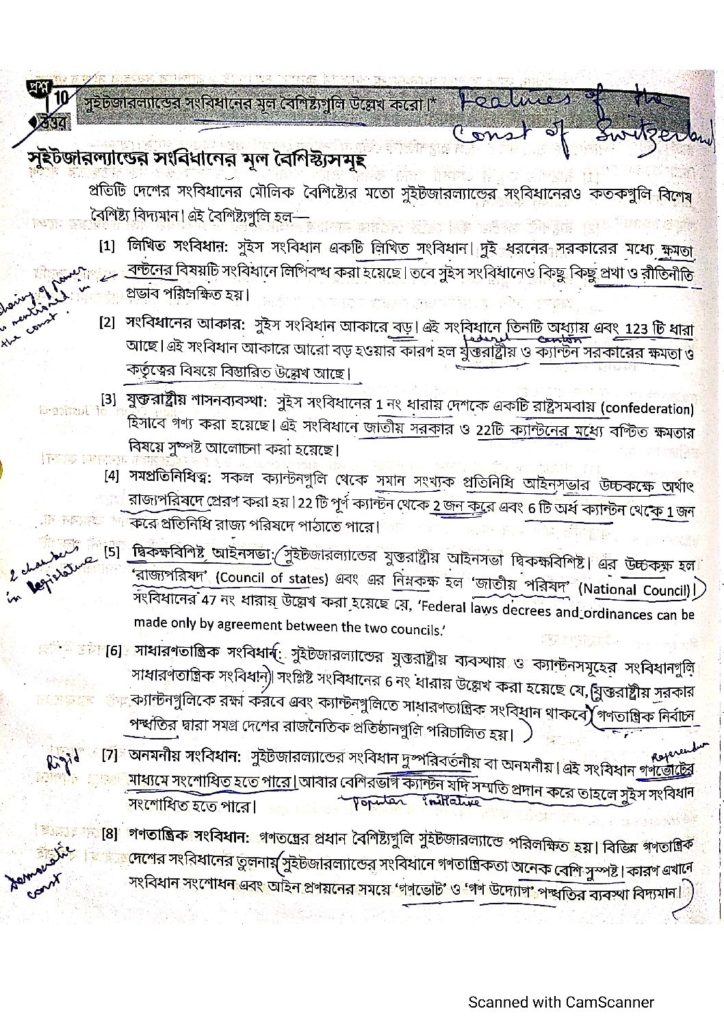 প্রশ্ন 10 সুইটজারল্যান্ডের সংবিধানের মূল বৈশিষ্ট্যগুলি উল্লেখ করো।*
Features of the
উত্তর
Const of Switzerland
সুইটজারল্যান্ডের সংবিধানের মূল বৈশিষ্ট্যসমূহ
প্রতিটি দেশের সংবিধানের মৌলিক বৈশিষ্ট্যের মতো সুইটজারল্যান্ডের সংবিধানেরও কতকগুলি বিশেষ
বৈশিষ্ট্য বিদ্যমান। এই বৈশিষ্ট্যগুলি হল—
[1] লিখিত সংবিধান: সুইস সংবিধান একটি লিখিত সংবিধান। দুই ধরনের সরকারের মধ্যে ক্ষমতা
বণ্টনের বিষয়টি সংবিধানে লিপিবদ্ধ করা হয়েছে। তবে সুইস সংবিধানেও কিছু কিছু প্রথা ও রীতিনীতি
প্রভাব পরিলক্ষিত হয়।
sharing of power
is mentioned in
the const.
[2] সংবিধানের আকার: সুইস সংবিধান আকারে বড়। এই সংবিধানে তিনটি অধ্যায় এবং 123 টি ধারা
federal canton
আছে। এই সংবিধান আকারে আরো বড় হওয়ার কারণ হল যুক্তরাষ্ট্রীয় ও ক্যান্টন সরকারের ক্ষমতা ও
কর্তৃত্বের বিষয়ে বিস্তারিত উল্লেখ আছে।
[3] যুক্তরাষ্ট্রীয় শাসনব্যবস্থা: সুইস সংবিধানের 1 নং ধারায় দেশকে একটি রাষ্ট্রসমবায় (confederation)
হিসাবে গণ্য করা হয়েছে। এই সংবিধানে জাতীয় সরকার ও 22টি ক্যান্টনের মধ্যে বণ্টিত ক্ষমতার
বিষয়ে সুস্পষ্ট আলোচনা করা হয়েছে।
[4] সমপ্রতিনিধিত্ব: সকল ক্যান্টনগুলি থেকে সমান সংখ্যক প্রতিনিধি আইনসভার উচ্চকক্ষে অর্থাৎ
রাজ্যপরিষদে প্রেরণ করা হয়। 22 টি পূর্ণ ক্যান্টন থেকে 2 জন করে এবং 6 টি অর্ধ ক্যান্টন থেকে 1 জন
করে প্রতিনিধি রাজ্য পরিষদে পাঠাতে পারে।
2 chambers
in legislature
[5] দ্বিকক্ষবিশিষ্ট আইনসভা: সুইটজারল্যান্ডের যুক্তরাষ্ট্রীয় আইনসভা দ্বিকক্ষবিশিষ্ট। এর উচ্চকক্ষ হল
‘রাজ্যপরিষদ’ (Council of states) এবং এর নিম্নকক্ষ হল ‘জাতীয় পরিষদ’ (National Council)।
সংবিধানের 47 নং ধারায় উল্লেখ করা হয়েছে যে, ‘Federal laws decrees and ordinances can be
made only by agreement between the two councils.’
[6] সাধারণতান্ত্রিক সংবিধান: সুইটজারল্যান্ডের যুক্তরাষ্ট্রীয় ব্যবস্থায় ও ক্যান্টনসমূহের সংবিধানগুলি
সাধারণতান্ত্রিক সংবিধান। সংশ্লিষ্ট সংবিধানের 6 নং ধারায় উল্লেখ করা হয়েছে যে, যুক্তরাষ্ট্রীয় সরকার
ক্যান্টনগুলিকে রক্ষা করবে এবং ক্যান্টনগুলিতে সাধারণতান্ত্রিক সংবিধান থাকবে। গণতান্ত্রিক নির্বাচন
পদ্ধতির দ্বারা সমগ্র দেশের রাজনৈতিক প্রতিষ্ঠানগুলি পরিচালিত হয়।
Rigid
Referendum
[7] অনমনীয় সংবিধান: সুইটজারল্যান্ডের সংবিধান দুষ্পরিবর্তনীয় বা অনমনীয়। এই সংবিধান গণভোটের
মাধ্যমে সংশোধিত হতে পারে। আবার বেশিরভাগ ক্যান্টন যদি সম্মতি প্রদান করে তাহলে সুইস সংবিধান
সংশোধিত হতে পারে।
Popular initiative
[8] গণতান্ত্রিক সংবিধান: গণতন্ত্রের প্রধান বৈশিষ্ট্যগুলি সুইটজারল্যান্ডে পরিলক্ষিত হয়। বিভিন্ন গণতান্ত্রিক
দেশের সংবিধানের তুলনায় সুইটজারল্যান্ডের সংবিধানে গণতান্ত্রিকতা অনেক বেশি সুস্পষ্ট। কারণ এখানে
সংবিধান সংশোধন এবং আইন প্রণয়নের সময়ে ‘গণভোট’ ও ‘গণ উদ্যোগ’ পদ্ধতির ব্যবস্থা বিদ্যমান।
Democratic
const
Scanned with CamScanner